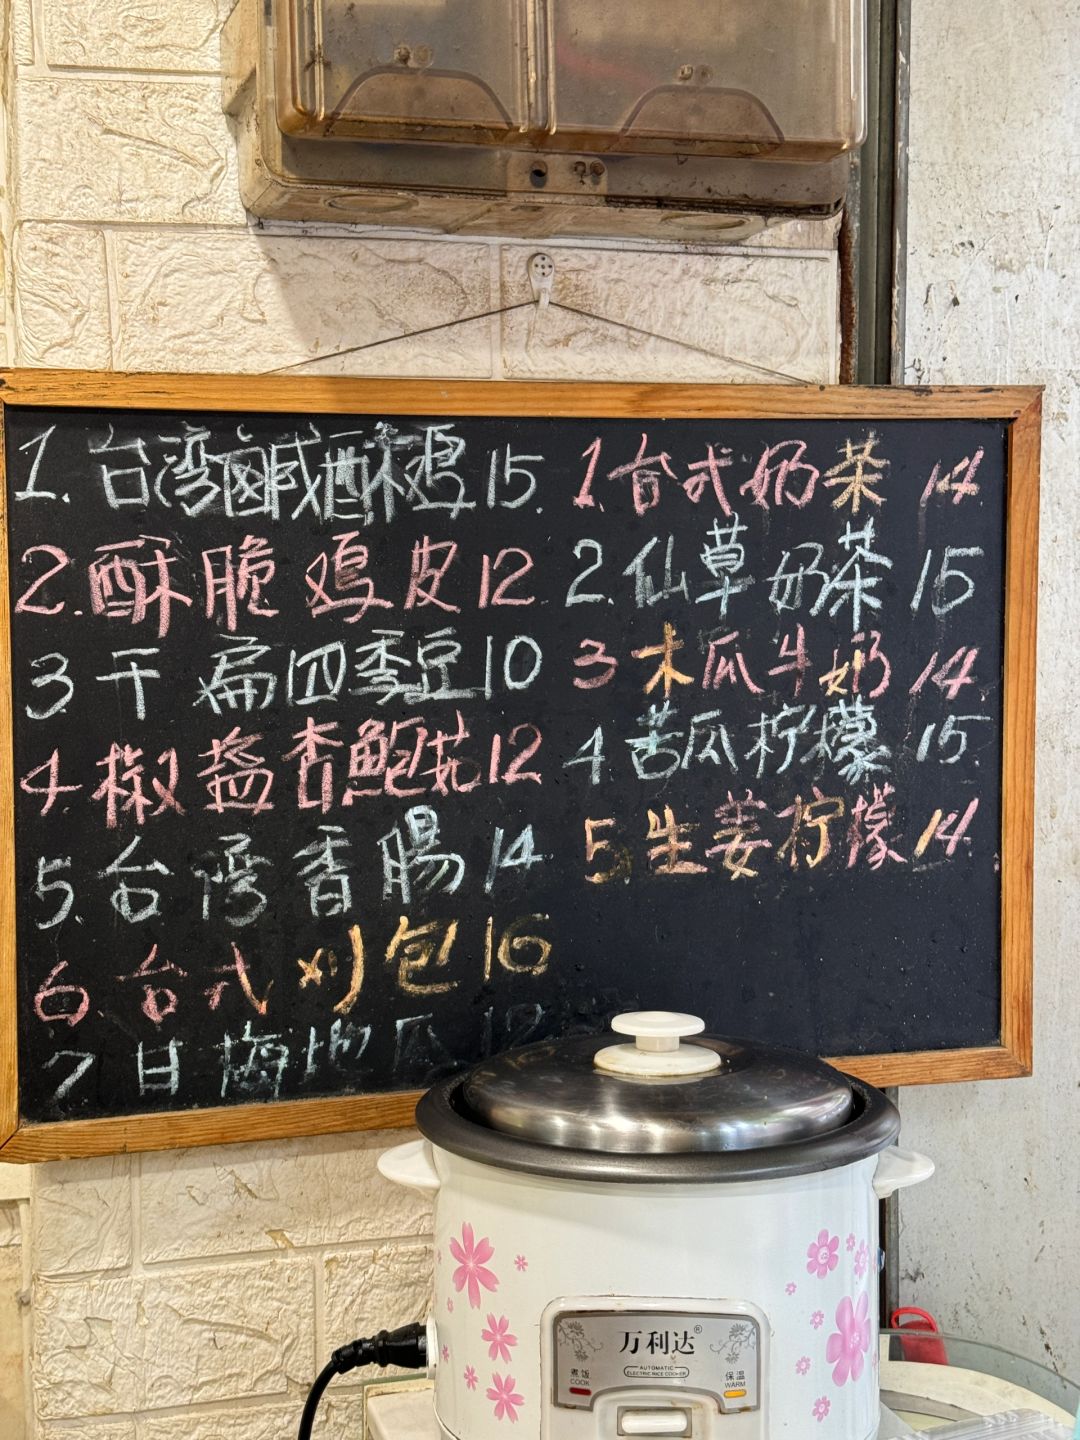 1. 台湾鹹酥鸡 15.
2. 酥脆鸡皮 12.
3 干扁四季豆 10
4. 椒盐杏鲍菇 12
5. 台湾香腸 14
6. 台式刈包 16
7 甘梅地瓜 12
1 台式奶茶 14
2. 仙草奶茶 15
3 木瓜牛奶 14
4 苦瓜柠檬 15.
5. 生姜柠檬 14
万利达®
AUTOMATIC
ELECTRIC RICE COOKER
煮饭
COOK
保温
WARM